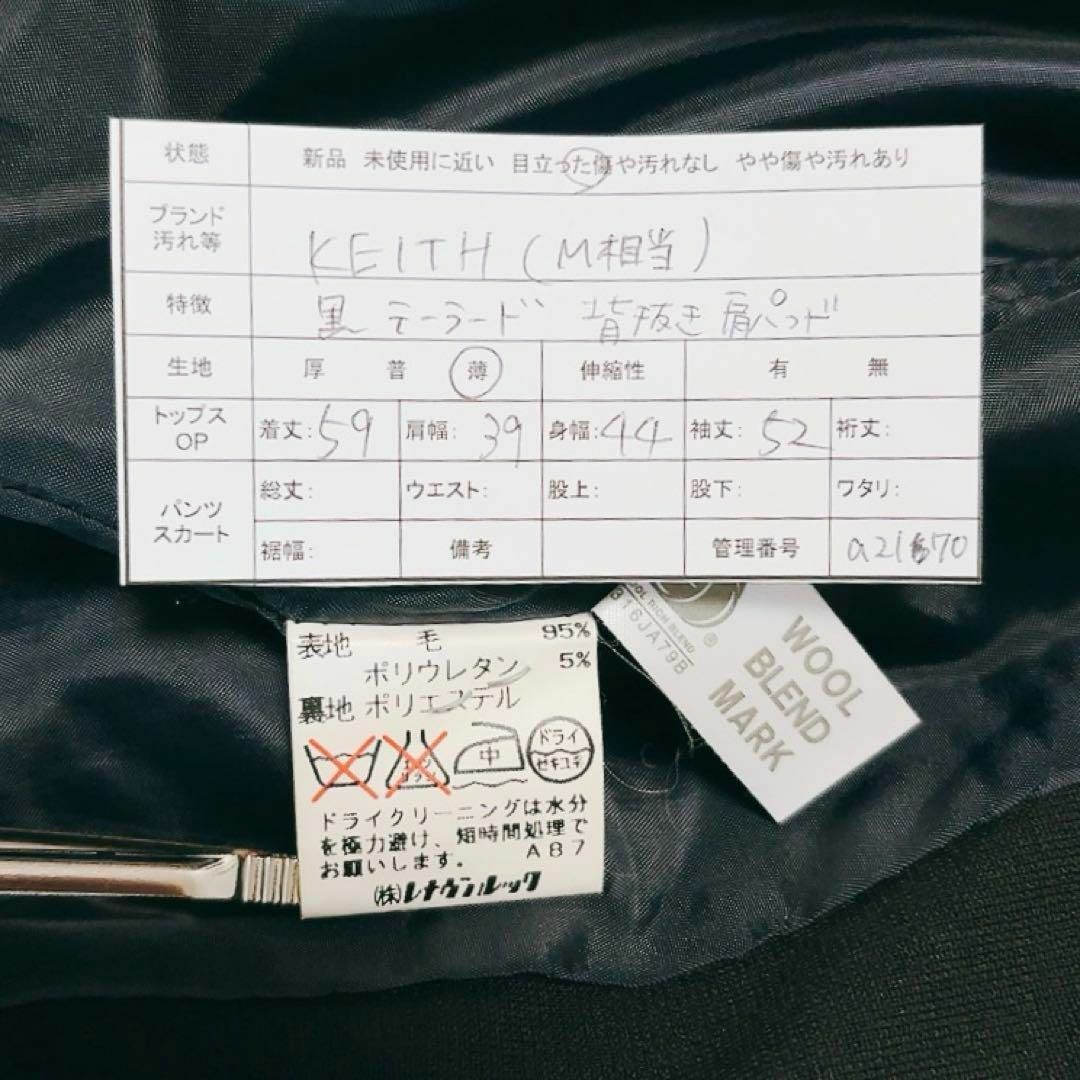 状態 新品 未使用に近い 目立った傷や汚れなし やや傷や汚れあり
ブランド
汚れ等
KEITH (M相当)
特徴 黒 テーラード 背抜き 肩パッド
生地 厚 普 薄 伸縮性 有 無
トップス
OP
着丈: 59 肩幅: 39 身幅: 44 袖丈: 52 裄丈:
パンツ
スカート
総丈: ウエスト: 股上: 股下: ワタリ:
裾幅: 備考 管理番号
表地 毛 95%
ポリウレタン 5%
裏地 ポリエステル
エンソ
サラシ
中
ドライ
セキユ系
ドライクリーニングは水分
を極力避け、短時間処理で
お願いします。 A87
(株)レナウンルック
RICH BLEND
®
316JA79B
WOOL
BLEND
MARK